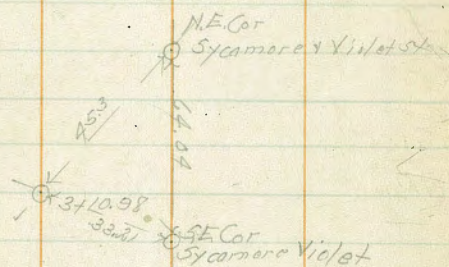 N.E. Cor
Sycamore & Violet St
45.3
64.04
3+10.98
33.21
S.E Cor
Sycamore Violet